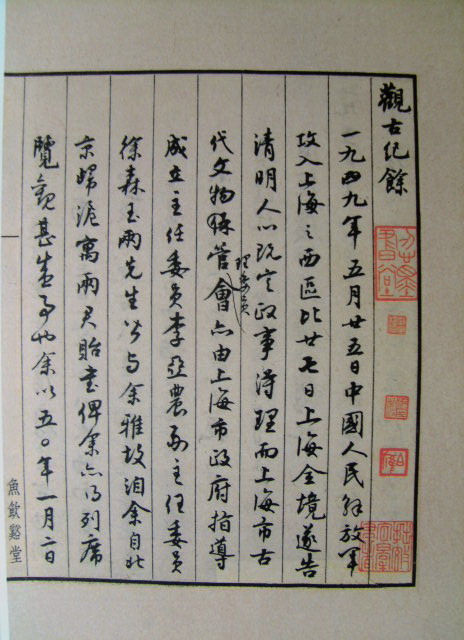 觀古紀餘
一九四九年五月廿五日中國人民解放軍
攻入上海之西區比廿七日上海全境遂告
清明人以既定政事得理而上海市古
代文物管會亦由上海市政府指導
理委員
成立主任委員李亞農副主任委員
徐森玉兩先生皆与余雅故洎余自北
京歸滬寓兩君貽書俾余亦得列席
覽觀甚盛事也余以五〇年一月二日
魚飲谿堂